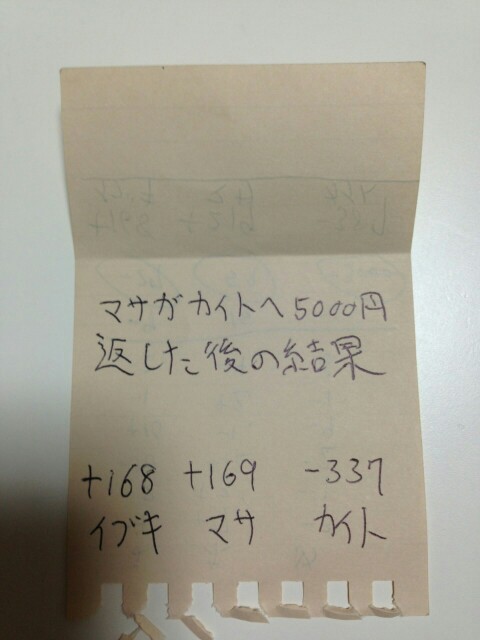 マサがカイトへ5000円
返した後の結果
+168 +169 -337
イブキ マサ カイト